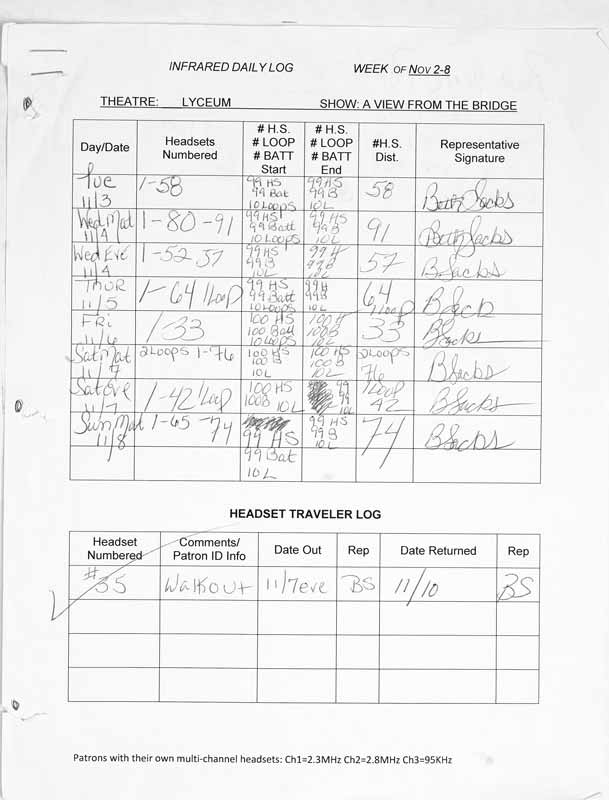 INFRARED DAILY LOG WEEK OF NOV 2-8
THEATRE: LYCEUM SHOW: A VIEW FROM THE BRIDGE
Day/Date Headsets Numbered # H.S. # LOOP # BATT Start # H.S. # LOOP # BATT End #H.S. Dist. Representative Signature
Tue 11/3 1-58 99 HS 99 Bat 10 Loops 99 HS 99 B 10 L 58 Betty Jacks
Wed Mat 11/4 1-80-91 99 HS 99 Batt 10 Loops 99 HS 99 B 10L 91 Betty Jacks
Wed Eve 11/4 1-52 57 99 HS 99 B 10L 99 H 99B 10L 57 B Jacks
Thur 11/5 1-64 1 Loop 99 HS 99 Batt 10 Loops 99 HS 99B 10L 64 1 Loop B Jack
Fri 11/6 1/33 100 HS 100 Batt 10 Loops 100 H 100B 10L 33 B Jacks
Sat Mat 11/7 2 Loops 1-76 100 HS 100 B 10L 100 HS 100 B 10L 2 Loops 76 B Jacks
Sat Eve 11/7 1-42 1 Loop 100 HS 100B 10L 99 99 10L 1 Loop 42 B Jacks
Sun Mat 11/8 1-65-74 99 HS 99 Bat 10L 99 HS 99 B 10L 74 B Jacks
HEADSET TRAVELER LOG
Headset Numbered Comments/ Patron ID Info Date Out Rep Date Returned Rep
#35 Walkout 11/7 eve BS 11/10 BS
Patrons with their own multi-channel headsets: Ch1=2.3MHz Ch2=2.8MHz Ch3=95KHz